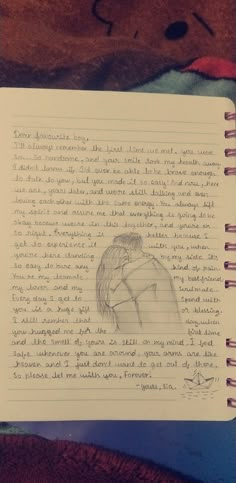 Dear favourite boy,
I'll always remember the first time we met. You were
so.. So handsome, and your smile took my breath away
I didn't know if I'd ever be able to be brave enough
to talk to you, but you made it so easy. And now, here
we are, years later, and we're still talking and
loving each other with the same energy. You always lift
my spirit and assure me that everything is going to be
okay because we're in this together, and you're
so right. Everything is better because I
get to experience it with you, when
you're there standing by my side. It's
so easy to have any kind of pain
You're my
my lover, and my soulmate.
Every day I get to spend with
you is a huge gift or blessing,
I still remember that day when
you hugged me for the first time
and the smell of yours is still on my mind. I feel
safe whenever you are around, your arms are like
heaven and I just don't want to get out of there,
So please, let me with you, Forever.
- yours,